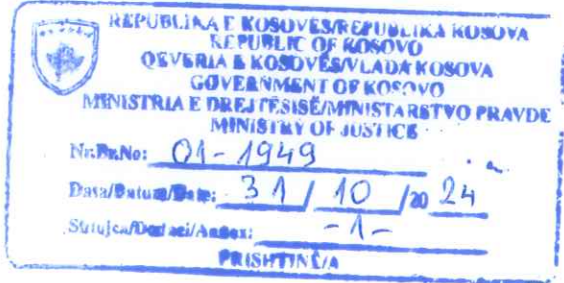 REPUBLIKA E KOSOVËS/REPUBLIKA KOSOVA
REPUBLIC OF KOSOVO
QEVERIA E KOSOVËS/VLADA KOSOVA
GOVERNMENT OF KOSOVO
MINISTRIA E DREJTËSISË/MINISTARSTVO PRAVDE
MINISTRY OF JUSTICE
Nr.Br.No: 01-1949
Data/Datum/Date: 31 / 10 /20 24
Shtojca/Dodaci/Annex: -1-
PRISHTINË/A